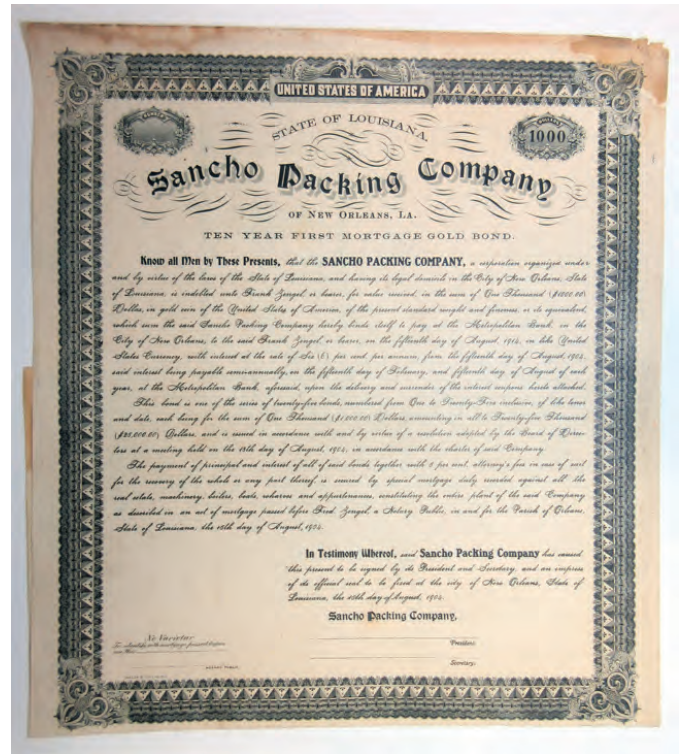 UNITED STATES OF AMERICA
STATE OF LOUISIANA.
1000
Sancho Packing Company
OF NEW ORLEANS, LA.
TEN YEAR FIRST MORTGAGE GOLD BOND.
Know all Men by These Presents, that the SANCHO PACKING COMPANY, a corporation organized under
and by virtue of the laws of the State of Louisiana, and having its legal domicile in the City of New Orleans, State
of Louisiana, is indebted unto Frank Zengel, or bearer, for value received, in the sum of One Thousand ($1000.00)
Dollars, in gold coin of the United States of America, of the present standard weight and fineness, or its equivalent,
which sum the said Sancho Packing Company hereby binds itself to pay at the Metropolitan Bank, in the
City of New Orleans, to the said Frank Zengel or bearer, on the fifteenth day of August, 1914, in like United
States Currency, with interest at the rate of Six (6) per cent. per annum, from the fifteenth day of August, 1904,
said interest being payable semi-annually, on the fifteenth day of February, and fifteenth day of August of each
year, at the Metropolitan Bank, aforesaid, upon the delivery and surrender of the interest coupons hereto attached.
This bond is one of the series of twenty-five bonds, numbered from One to Twenty-Five inclusive, of like tenor
and date, each being for the sum of One Thousand ($1,000.00) Dollars, amounting in all to Twenty-five Thousand
($25,000.00) Dollars, and is issued in accordance with and by virtue of a resolution adopted by the Board of Direc-
tors at a meeting held on the day of August, 1904, in accordance with the charter of said Company.
The payment of principal and interest of all of said bonds, together with 5 per cent. attorney's fees in case of suit
for the recovery of the whole or any part thereof, is secured by special mortgage duly recorded against all the
real estate, machinery, boilers, boats, wharves and appurtenances, constituting the entire plant of the said Company
as described in an act of mortgage passed before Fred Zengel, a Notary Public, in and for the Parish of Orleans,
State of Louisiana, the 15th day of August, 1904.
In Testimony Whereof, said Sancho Packing Company has caused
this present to be signed by its President and Secretary, and an impress
of its official seal to be fixed at the city of New Orleans, State of
Louisiana, the 15th day of August, 1904.
Sancho Packing Company,
President.
Secretary.
Ne Varietur
To identify with mortgage passed before
me, this
NOTARY PUBLIC.